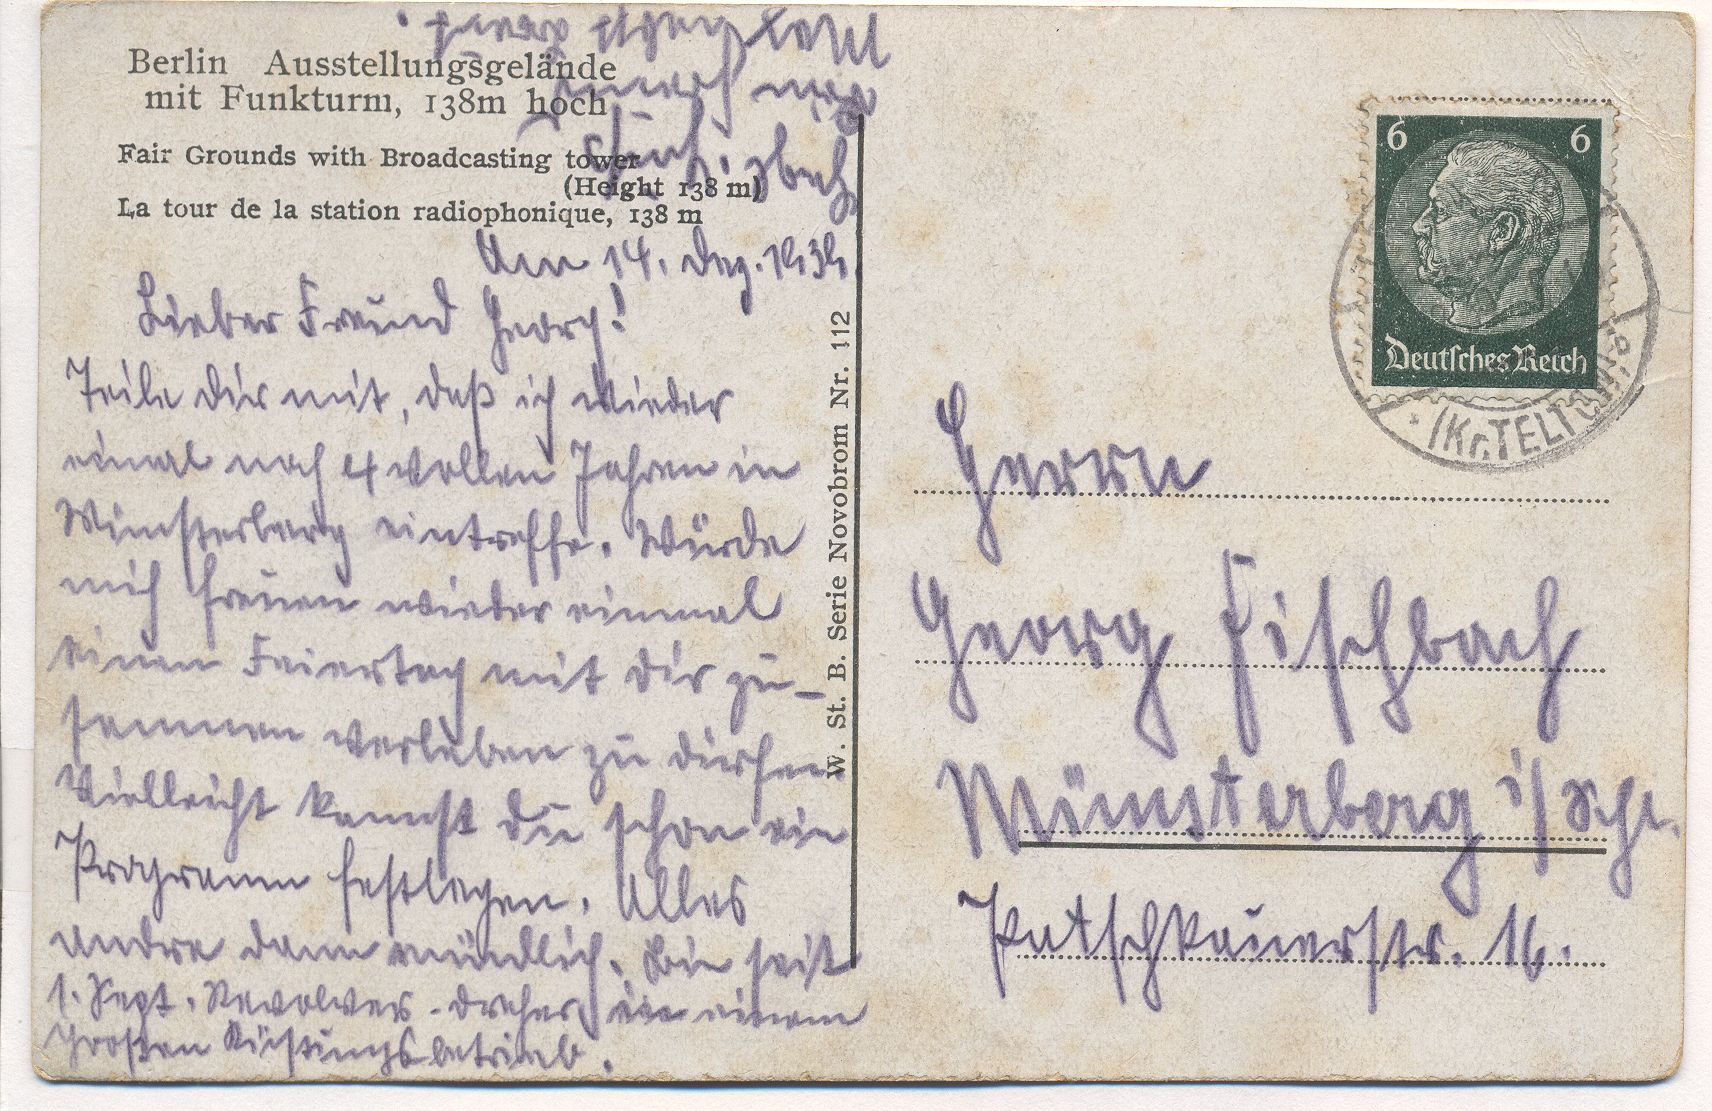 Berlin Ausstellungsgelände
mit Funkturm, 138m hoch
Fair Grounds with Broadcasting tower
(Height 138 m)
La tour de la station radiophonique, 138 m
Am 14. Dez.
Lieber Freund Georg!
Teile Dir mit, daß ich wieder
einmal nach 4 vollen Jahren in
Münsterberg eintreffe. Würde
mich freuen wieder einmal
einen Feiertag mit Dir zu-
sammen verleben zu dürfen.
Vielleicht kannst Du schon ein
Programm festlegen. Alles
andre dann mündlich. Bin seit
1. Sept. Revolver-Dreher in einem
großen Rüstungsbetrieb.
W. St. B. Serie Novobrom Nr. 112
6 6
Deutsches Reich
(Kr. TELTOW)
Herrn
Georg Fischbach
Münsterberg i/Schl.
Patschkauerstr. 16.